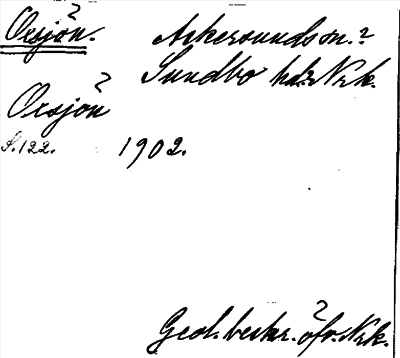 Orsjön.? Askersunds sn.?
Sundbo hd. Nrk.
Orsjön?
S. 122. 1902.
Geol. beskr. öfv. Nrk.